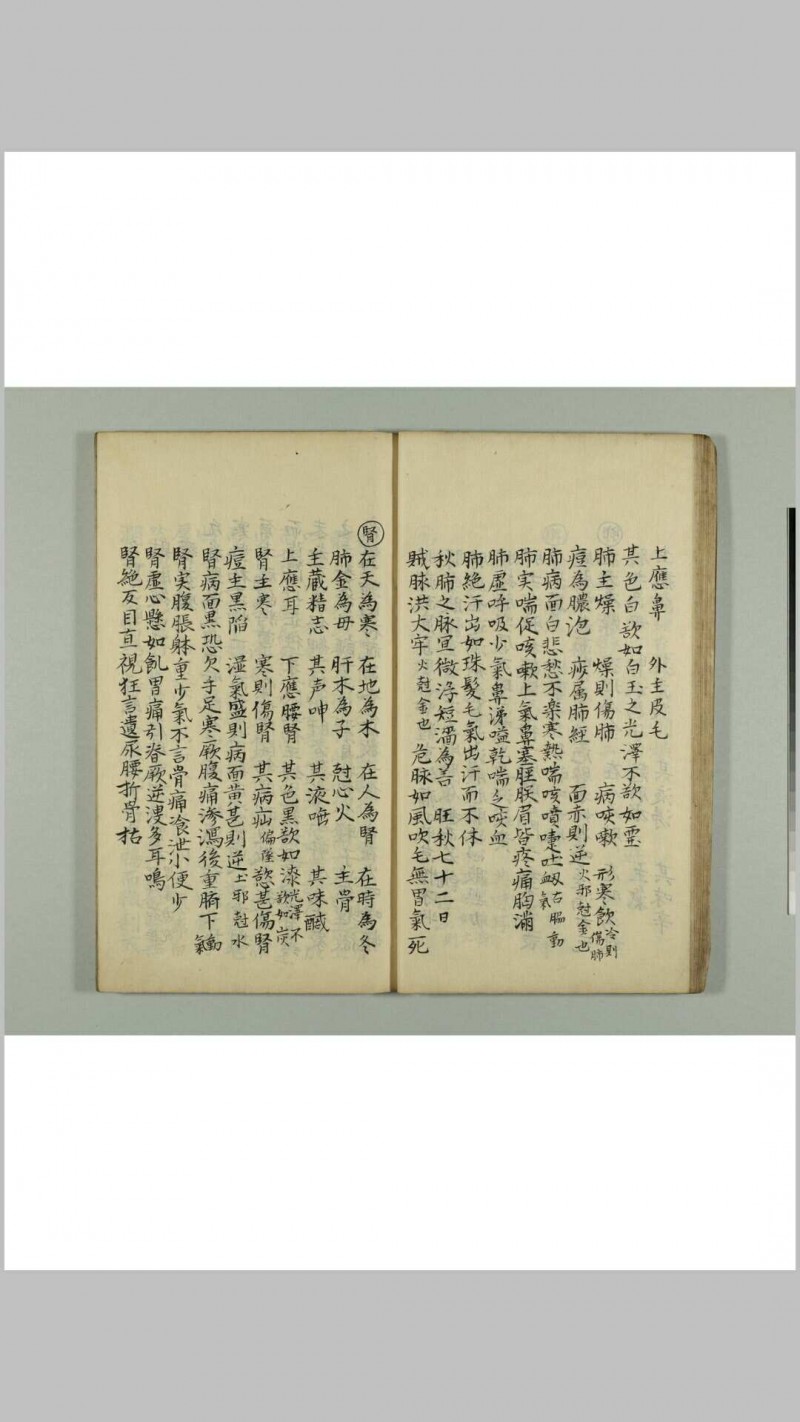 上應鼻　外主皮毛
其色白欲如白玉之光澤不欲如堊
肺主燥　燥則傷肺　病咳嗽　形寒飲冷則傷肺
痘為膿泡　疹属肺經　面赤則逆火邪尅金也
肺病面白悲愁不楽寒熱喘咳噴嚏吐衂右脇動氣
肺实喘促咳嗽上氣鼻塞胵朕眉皆疼痛胸滿
肺虚呼吸少氣鼻涕嗌乾喘乏咳血
肺絶汗出如珠髮毛氣出汗而不休
秋肺之脉宜微浮短濇為善　旺秋七十二日
賊脉洪大牢火尅金也　危脉如風吹毛無胃氣死
腎　在天為寒　在地為木　在人為腎　在時為冬
肺金為母　肝木為子　尅心火　主骨
主藏精志　其声呻　其液唾　其味醎
上應耳　下應腰腎　其色黒欲如漆光澤不欲如炭
腎主寒　寒則傷腎　其病疝偏墜慾甚傷腎
痘主黒陷　湿氣盛則病面黄甚則逆土邪尅水
腎病面黒恐欠手足寒厥腹痛滲瀉後重臍下動氣
腎实腹脹躰重少氣不言骨痛飡泄小便少
腎虚心懸如飢胃痛引脊厥逆溲多耳鳴
腎絶反目直視狂言遺尿腰折骨枯